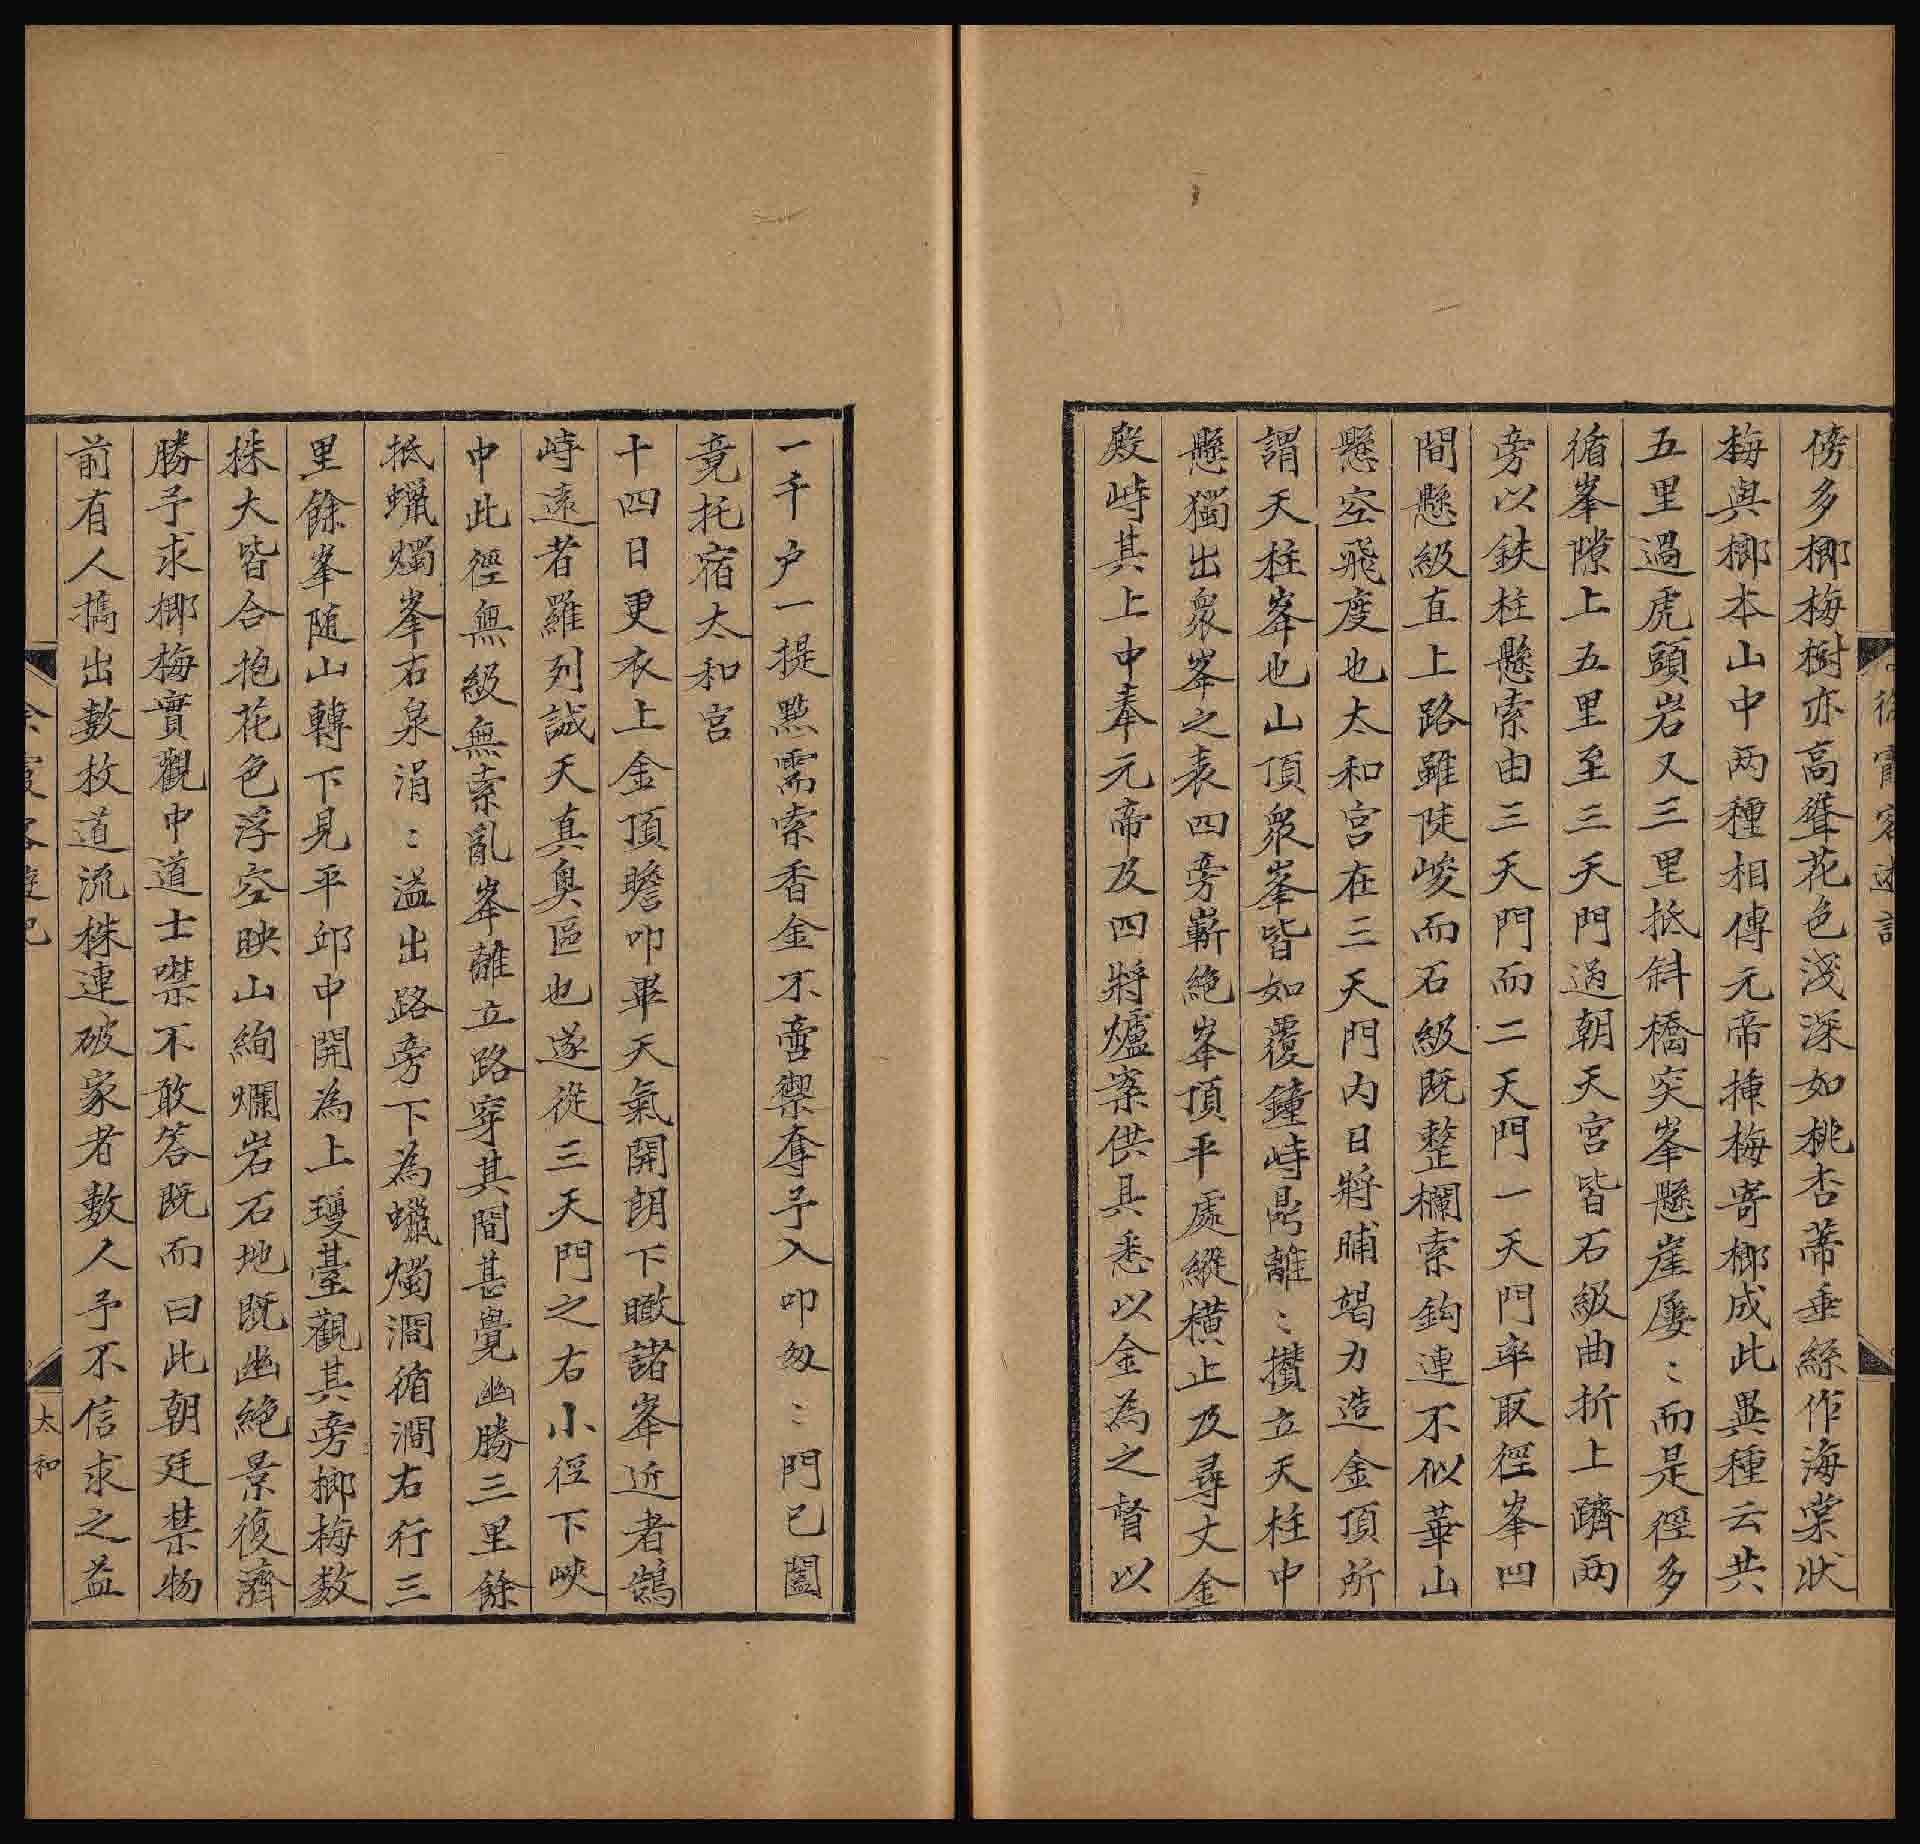 傍多榔梅樹亦高聳花色淺深如桃杏蒂垂絲作海棠狀
梅與榔本山中两種相傳元帝揷梅寄榔成此異種云共
五里過虎頭岩又三里抵斜橋突峯懸崖屢〻而是徑多
循峯隙上五里至三天門過朝天宮皆石級曲折上躋兩
旁以鉄柱懸索由三天門而二天門一天門率取徑峯四
間懸級直上路雖陡峻而石級既整欄索鈎連不似華山
懸空飛度也太和宮在三天門内日將晡竭力造金頂所
謂天柱峯也山頂衆峯皆如覆鐘峙鼎離〻攢立天柱中
懸獨出衆峯之表四旁嶄絶峯頂平處縱横止及尋丈金
殿峙其上中奉元帝及四將爐案供具悉以金為之督以
一千户一提㸃需索香金不啻禦奪予入叩匆〻門已闔
竟托宿太和宮
十四日更衣上金頂瞻叩畢天氣開朗下瞰諸峯近者鵠
峙遠者羅列誠天真奥區也遂從三天門之右小徑下峽
中此徑無級無索亂峯離立路穿其間甚覺幽勝三里餘
抵蠟燭峯右泉涓〻溢出路旁下為蠟燭澗循澗右行三
里餘峯随山轉下見平邱中開為上瓊臺觀其旁榔梅数
株大皆合抱花色浮空映山絢爛岩石地既幽絶景復濟
勝予求榔梅實觀中道士噤不敢答既而曰此朝廷禁物
前有人携出數枚道流株連破家者數人予不信求之益
太和